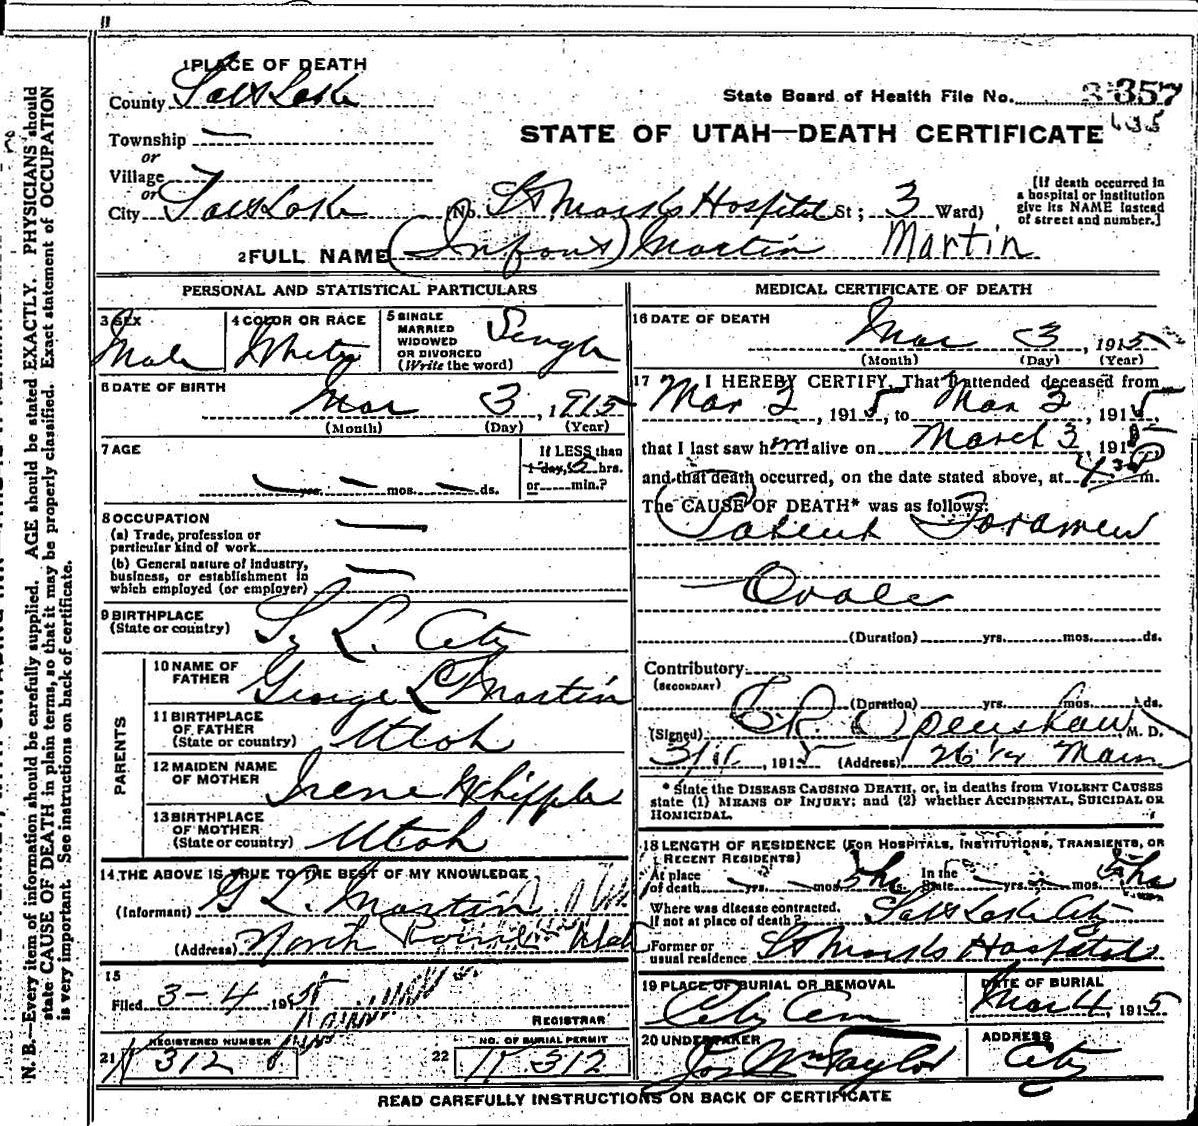 1 PLACE OF DEATH
County Salt Lake
State Board of Health File No. 357
Township —
or
Village
or
City Salt Lake
STATE OF UTAH—DEATH CERTIFICATE
(No. St Marks Hospital St; 3 Ward)
[If death occurred in
a hospital or institution
give its NAME instead
of street and number.]
2 FULL NAME (Infant) Martin Martin
PERSONAL AND STATISTICAL PARTICULARS
3 SEX
Male
4 COLOR OR RACE
White
5 SINGLE
MARRIED
WIDOWED
OR DIVORCED
(Write the word)
Single
6 DATE OF BIRTH
Mar 3, 1915
(Month) (Day) (Year)
7 AGE
— yrs. — mos. — ds.
If LESS than
1 day, 5 hrs.
or min.?
8 OCCUPATION —
(a) Trade, profession or
particular kind of work
(b) General nature of industry,
business, or establishment in
which employed (or employer) —
9 BIRTHPLACE
(State or country) S. L. City
PARENTS
10 NAME OF
FATHER George L Martin
11 BIRTHPLACE
OF FATHER
(State or country) Utah
12 MAIDEN NAME
OF MOTHER Irene
13 BIRTHPLACE
OF MOTHER
(State or country) Utah
14 THE ABOVE IS TRUE TO THE BEST OF MY KNOWLEDGE
(Informant) G L. Martin
(Address) North Point Utah
15
Filed 3-4 1915
REGISTRAR
21 REGISTERED NUMBER
312
22 NO. OF BURIAL PERMIT
312
MEDICAL CERTIFICATE OF DEATH
16 DATE OF DEATH
Mar 3, 1915
(Month) (Day) (Year)
17 I HEREBY CERTIFY, That I attended deceased from
Mar 3, 1915, to Mar 3, 1915,
that I last saw him alive on March 3, 191
and that death occurred, on the date stated above, at 430P m.
The CAUSE OF DEATH* was as follows:
Patent Foramen
Ovale
(Duration) yrs. mos. ds.
Contributory
(SECONDARY)
(Duration) yrs. mos. ds.
(Signed) E.R. Openshaw M. D.
1915 (Address) Main
* State the DISEASE CAUSING DEATH, or, in deaths from VIOLENT CAUSES
state (1) MEANS OF INJURY; and (2) whether ACCIDENTAL, SUICIDAL OR
HOMICIDAL.
18 LENGTH OF RESIDENCE (FOR HOSPITALS, INSTITUTIONS, TRANSIENTS, OR
RECENT RESIDENTS)
At place
of death — yrs. — mos. 5 hrs In the
State — yrs. — mos. 5 hrs
Where was disease contracted,
if not at place of death? Salt Lake City
Former or
usual residence St Marks Hospital
19 PLACE OF BURIAL OR REMOVAL
City Cem
DATE OF BURIAL
Mar 4, 1915
20 UNDERTAKER
Jos Wm Taylor
ADDRESS
City
READ CAREFULLY INSTRUCTIONS ON BACK OF CERTIFICATE
N. B.—Every item of information should be carefully supplied. AGE should be stated EXACTLY. PHYSICIANS should
state CAUSE OF DEATH in plain terms, so that it may be properly classified. Exact statement of OCCUPATION
is very important. See instructions on back of certificate.